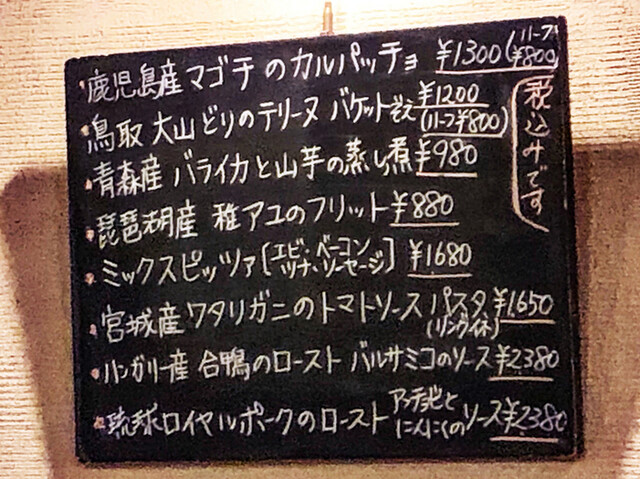 鹿児島産 マゴチ の カルパッチョ ¥1300 (ハーフ ¥800)
鳥取 大山 どりのテリーヌ バケットぞえ ¥1200 (ハーフ¥800)
青森産 バライカと山芋の蒸し煮 ¥980
琵琶湖産 稚アユのフリット ¥880
ミックスピッツァ [エビ・ベーコン ツナ・ソーセージ] ¥1680
宮城産 ワタリガニのトマトソース パスタ (リングイネ) ¥1,650
ハンガリー産 合鴨のロースト バルサミコのソース ¥2380
琉球ロイヤルポークのロースト アンチョビと にんにくの ソース ¥2,380
税込みです